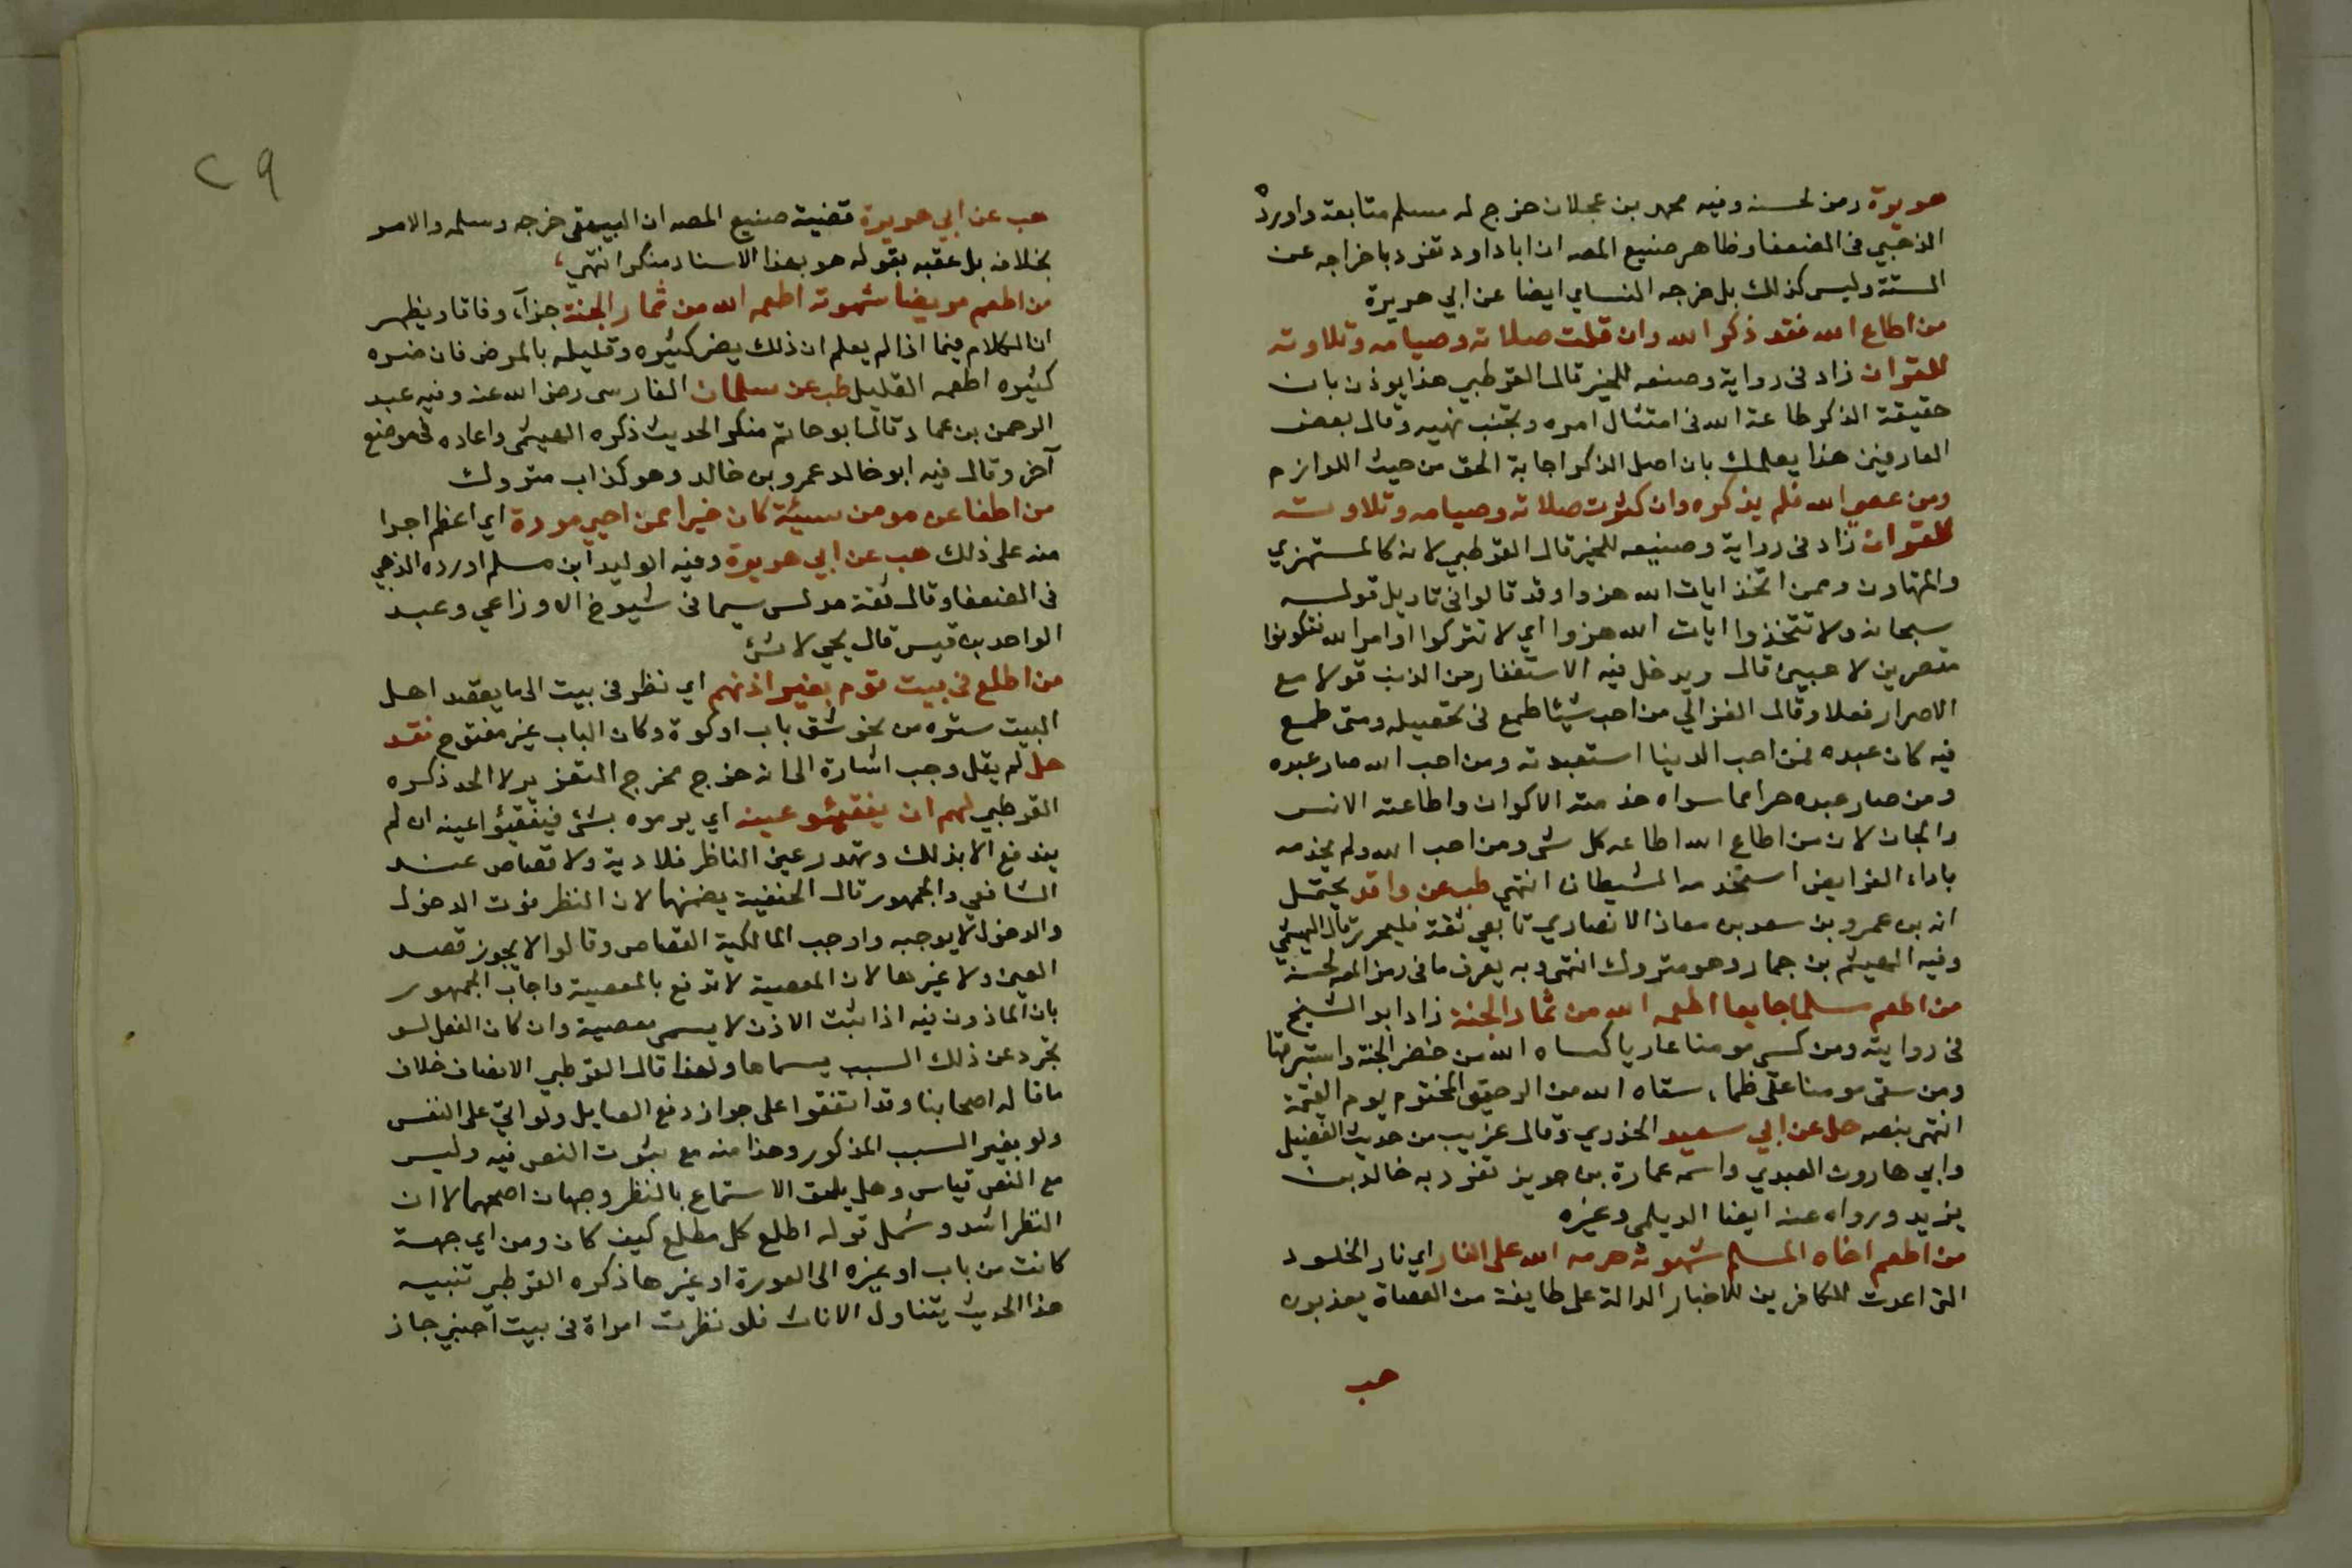 هريرة رمز لحسنه وفيه محمد بن عجلان خرج له مسلم متابعة واورده
الذهبي في الضعفا وظاهر صنيع المصـ ان ابا داود تفرد باخراجه عن
الستة وليس كذلك بل خرجه النساي ايضا عن ابي هريرة
من اطاع الله فقد ذكر الله وان قلت صلاته وصيامه وتلاوته
للقران زاد في رواية وصنعه للخير قال القرطبي هذا يوذن بان
حقيقة الذكر طاعة الله في امتثال امره وتجنب نهيه وقال بعض
العارفين هذا يعلمك بان اصل الذكر اجابة الحق من حيث اللوازم
ومن عصى الله فلم يذكره وان كثرت صلاته وصيامه وتلاوته
للقران زاد في رواية وصنيعه للخير قال القرطبي لانه كالمستهزي
والمتهاون وممن اتخذ ايات الله هزوا وقد قالوا في تاويل قوله
سبحانه ولا تتخذوا ايات الله هزوا اي لا تتركوا اوامر الله فتكونوا
مقصرين لاعبين قال ويدخل فيه الاستغفار من الذنب قولا مع
الاصرار فعلا وقال الغزالي من احب شيئا طمع في تحصيله ومتى طمع
فيه كان عبده فمن احب الدينا استعبدته ومن احب الله صار عبده
ومن صار عبده حرا مما سواه خدمته الاكوان واطاعته الانس
والجان لان من اطاع الله اطاعه كل شي ومن احب الله ولم يخدمه
باداء الفرايض استخدمه الشيطان انتهي طب عن واقد يحتمل
انه بن عمرو بن سعد بن معاذ الانصاري تابعي ثقة فليحرر قال الهيثمي
وفيه الهيثم بن جماز وهو متروك انتهى وبه يعرف ما في رمز المصـ لحسنه
من اطعم مسلما جايعا اطعمه الله من ثمار الجنة زاد ابو الشيخ
في روايته ومن كسى مومنا عاريا كساه الله من خضر الجنة واستبرقها
ومن سقى مومنا على ظماء سقاه الله من الرحيق المختوم يوم القيمة
انتهى بنصه حل عن ابي سعيد الخدري وقال غريب من حديث الفضيل
وابي هارون العبدي واسمه عمارة بن جوين تفرد به خالد بن
يزيد ورواه عنه ايضا الديلمي وغيره
من اطعم اخاه المسلم شهوته حرمه الله على النار اي نار الخلود
التي اعدت للكافرين للاخبار الدالة على طايفة من العصاة يعذبون
هب
٢٩
هب عن ابي هريرة قضية صنيع المصـ ان البيهقي خرجه وسلمه والامر
بخلافه بل عقبه بقوله هو بهذا الاسناد منكر انتهي
من اطعم مريضا شهوته اطعمه الله من ثمار الجنة جزآء وفاقا ويظهر
ان الكلام فيما اذا لم يعلم ان ذلك يضر كثيره وقليله بالمرض فان ضره
كثيره اطعمه القليل طب عن سلمان الفارسي رضي الله عنه وفيه عبد
الرحمن بن عماد قال ابو حاتم منكر الحديث ذكره الهيثمي واعاده في موضع
آخر وقال فيه ابو خالد عمرو بن خالد وهو كذاب متروك
من اطفا عن مومن سيئة كان خيرا ممن احيي موردة اي اعظم اجرا
منه على ذلك هب عن ابي هريرة وفيه الوليد ابن مسلم اورده الذهبي
في الضعفا وقال ثقة مدلس سيما في شيوخ الاوزاعي وعبد
الواحد بن قيس قال يحيى لا شئ
من اطلع في بيت قوم بغير اذنهم اي نظر في بيت الى ما يقصد اهل
البيت ستره من نحو شق باب او كوة وكان الباب غير مفتوح فقد
حل لم يقل وجب اشارة الى انه خرج مخرج التعزير لا الحد ذكره
القرطبي لهم ان يفقيئو عينه اي يرموه بشئ فيفقيؤا عينه ان لم
يندفع الا بذلك وتهدر عين الناظر فلا دية ولا قصاص عند
الشافعي والجمهور قال الحنفية يضمنها لان النظر فوق الدخول
والدخول لا يوجبه واوجب المالكية القصاص وقالوا لا يجوز قصد
العين ولا غيرها لان المعصية لا تدفع بالمعصية واجاب الجمهور
بان الماذون فيه اذا ثبت الاذن لا يسمى معصية وان كان الفعل لو
تجرد عن ذلك السبب يسماها ولهذا قال القرطبي الانصاف خلاف
ما قاله اصحابنا وقد اتفقوا على جواز دفع الصايل ولو اتي على النفس
ولو بغير السبب المذكور وهذا منه مع ثبوت النص فيه وليس
مع النص قياس وهل يلحق الاستماع بالنظر وجهان اصحهما لا ان
النظر اشد وشمل قوله اطلع كل مطلع كيف كان ومن اي جهة
كانت من باب او غيره الى العورة او غيرها ذكره القرطبي تنبيه
هذا الحديث يتناول الاناث فلو نظرت امراة في بيت اجنبي جاز